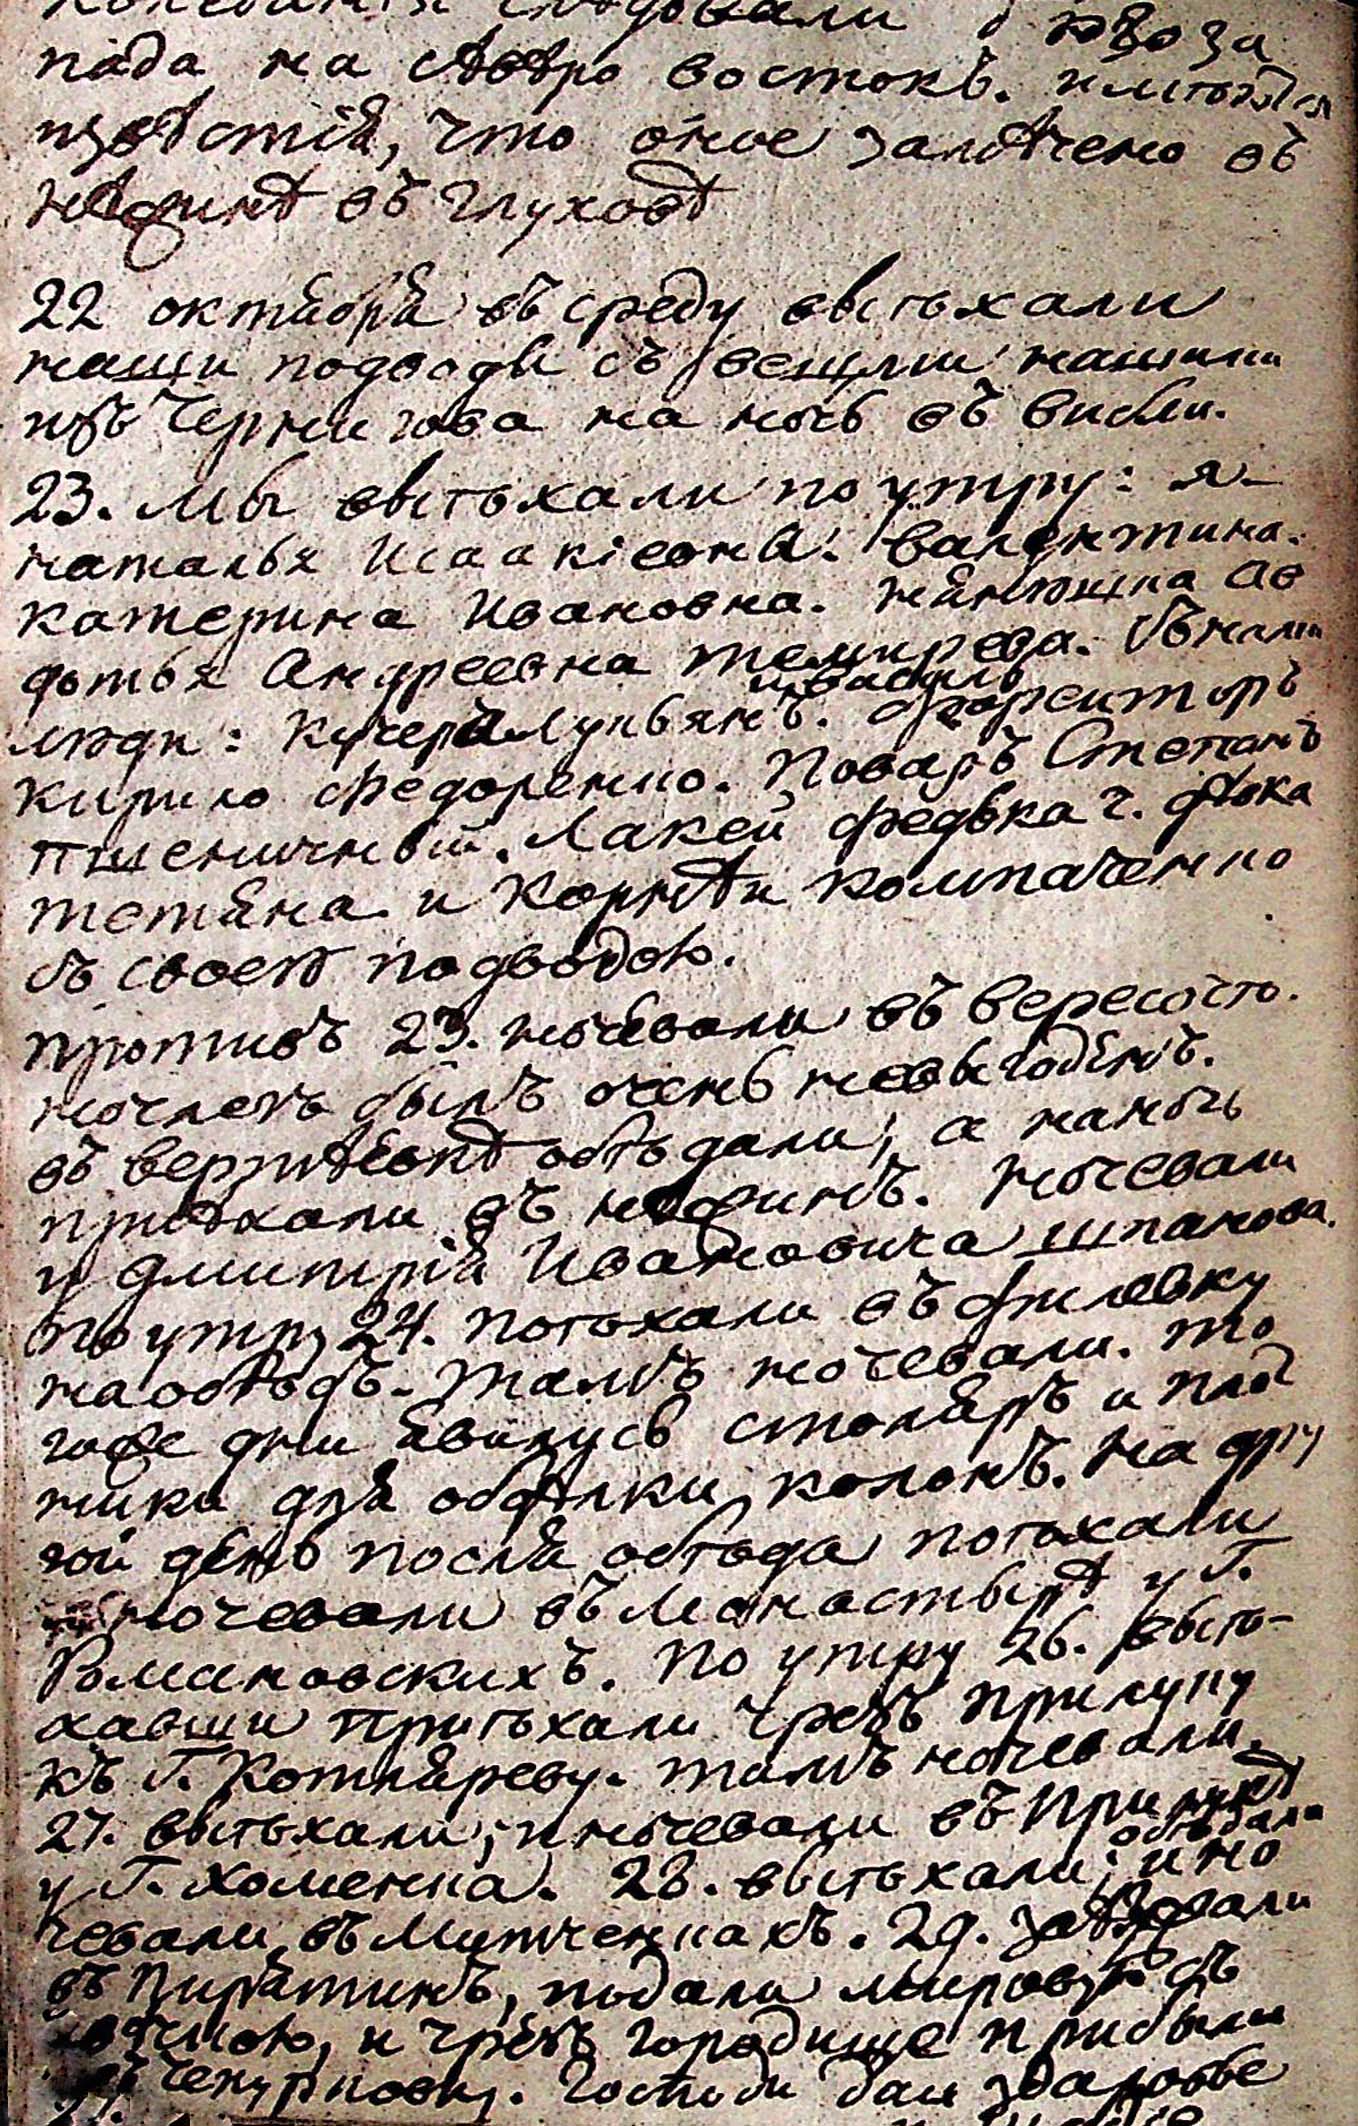 слѣдовали
пада на сѣверо востокъ.
извѣстiя, что оное замѣчено въ
нѣжинѣ въ глуховѣ
22 октября въ среду выѣхали
наши подводы съ вещми нашими
изъ Чернигова на ночь въ
23. Мы выѣхали поутру: я.
наталья Исаакiевна: валентина.
катерина Ивановна. нянюшка ав
дотья Андреевна Темирева. съ нами
и василь
люди: Кучера Лукьянъ. форейторъ
Кирило Федоренко. Поваръ Степанъ
пшеничный. Лакей Федька ч. фѣока
тетяна. и Корнѣй Компаченко
съ своею подводою.
противъ 23. ночевали въ вересочь.
ночлегъ былъ очень невыгоденъ.
въ вертѣевкѣ обѣдали; а наночь
приѣхали въ нѣжинъ. ночевали
у дмитрiя Ивановича шпакова.
поутру 24. поѣхали въ филевку
на обѣдъ. тамъ ночевали. то
гоже дни явилусь столяръ и плот
ники для обдѣлки колонъ. на дру
гой день посля обѣда поѣхали
ночевали въ Монастырѣ у Г.
Романовскихъ. По утру 26. выѣ-
хавши приѣхали чрезъ прилуку
къ Г. Котляреву. тамъ ночевали.
27. выѣхали; и ночевали въ Прилукѣ
обѣдали
у Г. Хоменка. 28. выѣхали; и но
чевали въ Митченкахъ. 29.
въ Пирятинъ, подали мировую съ
и чрезъ городище прибыли
Чекурновку. Господи дай здаровье